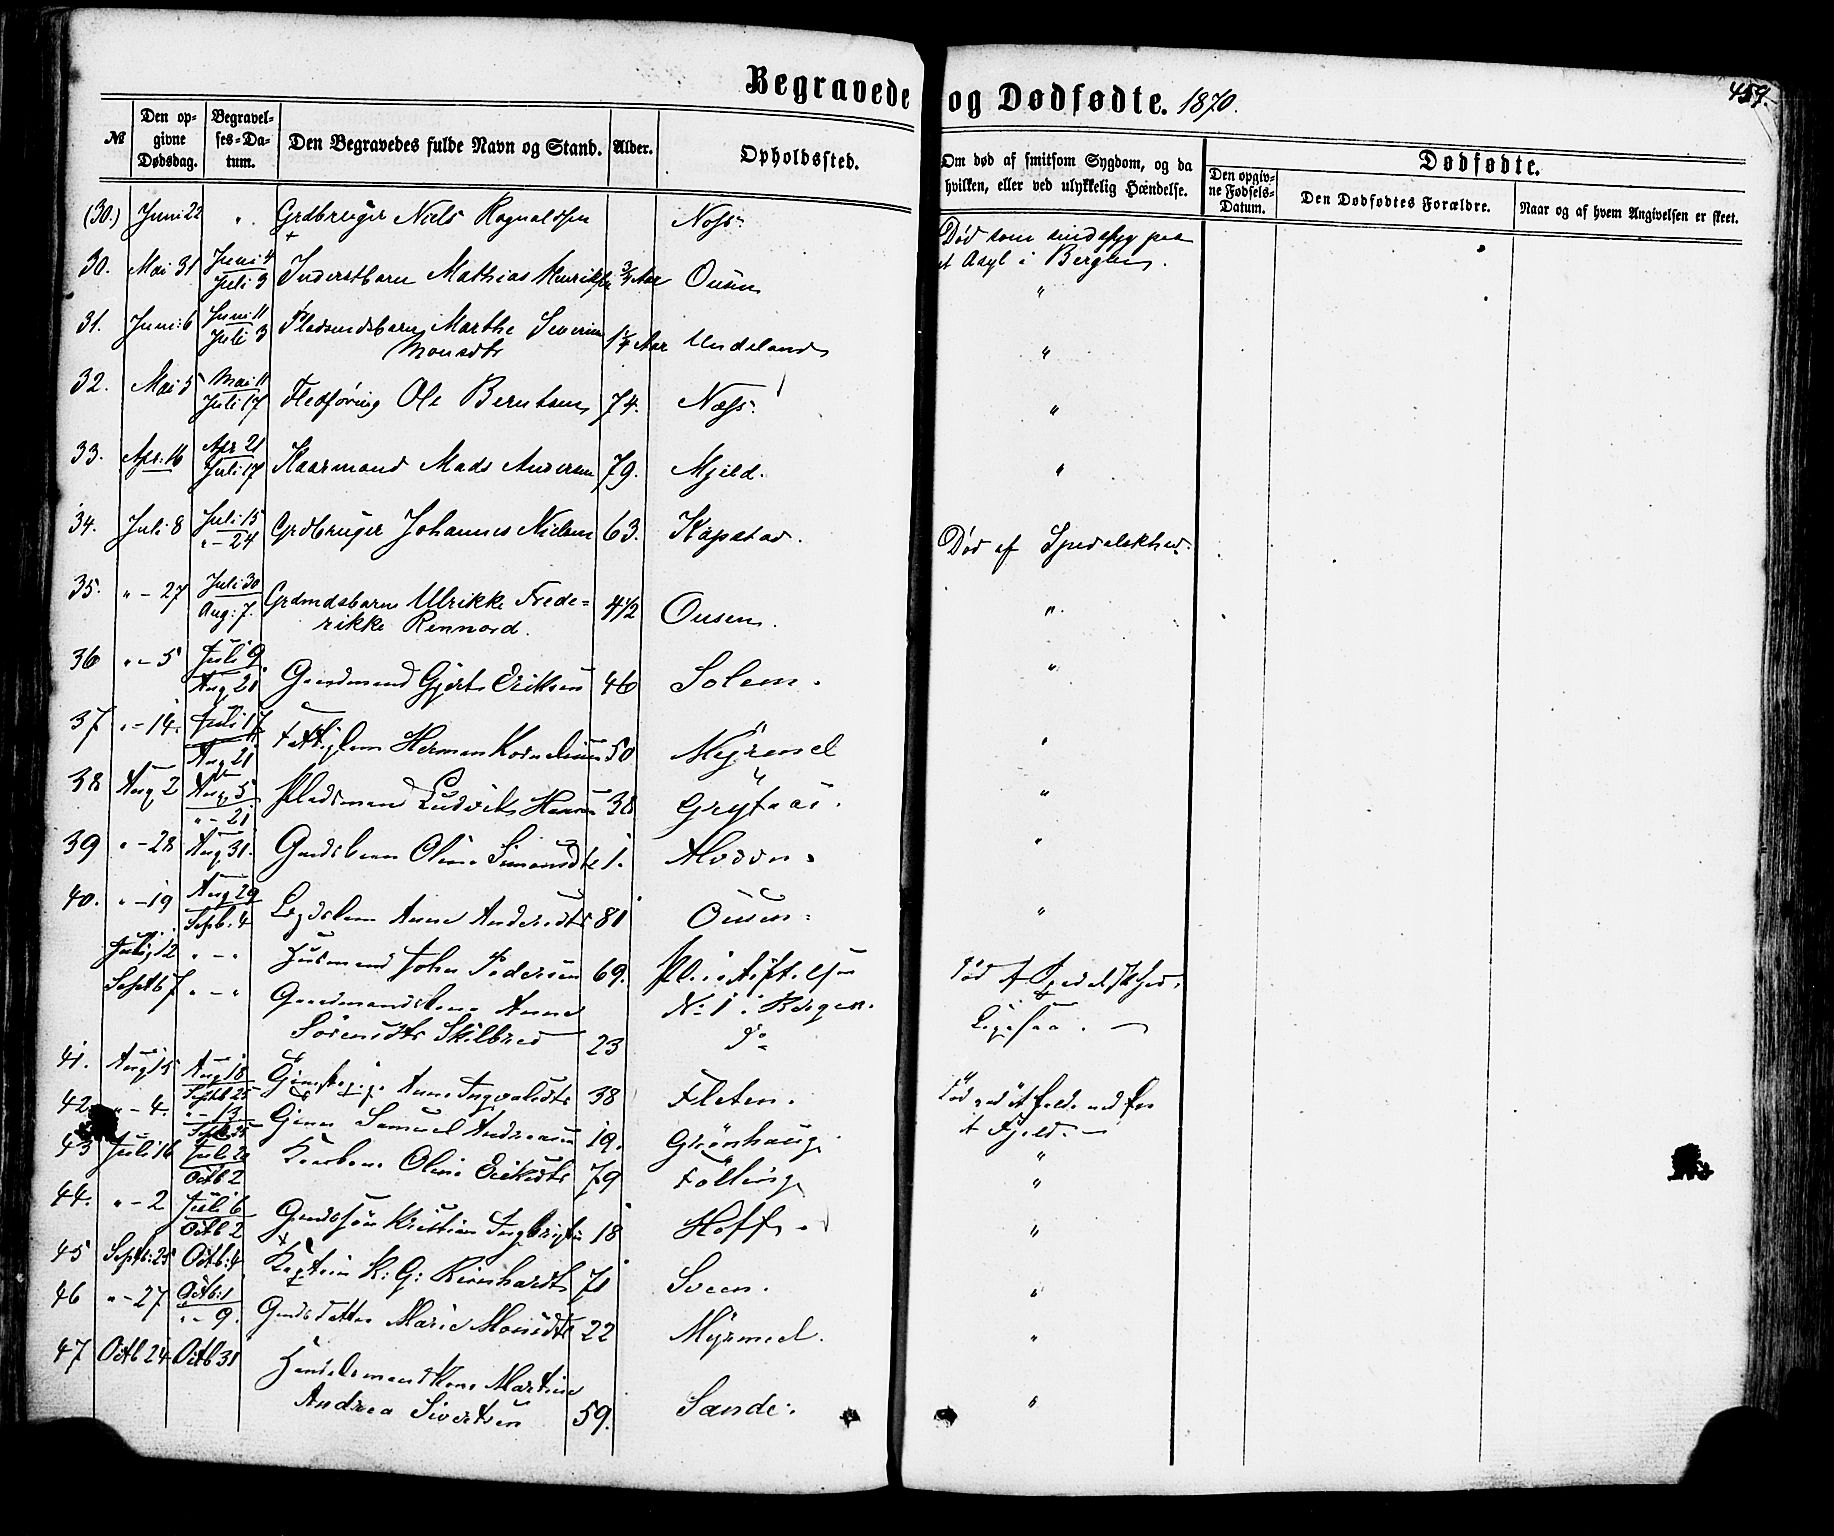 Begravede og Dødfødte. 1870.
459.
№
Den opgivne Dødsdag.
Begravelses-Datum.
Den Begravedes fulde Navn og Stand.
Alder.
Opholdssted.
Om død af smitsom Sygdom, og da hvilken, eller ved ulykkelig Hændelse.
Dødfødte.
Den opgivne Fødsels-Datum.
Den Dødfødtes Forældre.
Naar og af hvem Angivelsen er skeet.
(30.) Juni 22 " Grdbruger Niels Ragnaldsen
Død som sindssyg paa
et Asyl i Bergen.
30. Mai 31 Juni 4 Juli 3 Inderstbarn Mathias Henriksen 3/4 Aar Ousen "
31. Juni 6 Juni 11 Juli 3 Pladsmdsbarn Marthe Severine
Monsdtr 1 1/4 Aar Undeland "
32. Mai 5 Mai 11 Juli 17 Fledføring Ole Berntsen 74. Næss. "
33. Apr. 16 Apr 21 Juli 17 Kaarmand Mads Andersen 79. Mjeld. "
34. Juli 8 Juli 15 " - 24 Grdbruger Johannes Nielsen 63. Kapstad. Død af Spedalskhed.
35. " - 27 Juli 30 Aug: 7. Grdmdsbarn Ulrikke Frede-
rikke Rennord. 4 1/2 Ousen. "
36 " - 5 Juli 9 Aug 21 Gaardmand Gjert Eriksen 46 Solem. "
37 " - 14. Juli 17 Aug 21 Fattiglem Herman Kornelius 50 Myrmel "
38 Aug 2 Aug 5 " - 21 Pladsmand Ludvik Hansen 38 Grytaas. "
39 " - 28 Aug 31. Grdsbarn Oline Simonsdtr 1. "
40. " - 19 Aug 29 Septb. 4 Legdslem Anne Andersdtr 81 Ousen. "
Juli 12 " - " Husmand John Pedersen 69. Pleiestiftelsen
Død af Spedalskhed.
Septb 7 " - " Gaardmandskone Anne
Sørensdtr Skilbred 23
No 1 i Bergen.
do
Ligesaa. -
41. Aug 15 Aug 18 Septb 25 Anne Ingvaldsdtr 38 Fleten.
Død ved at falde ud for
et Fjeld. -
42. " - 4. " - 13 Septb 25 Samuel Andreasen 19. Grønhaug.
43 Juli 16 Juli 20 Octb 2 Oline Eriksdtr 79 Følling "
44. " - 2 Juli 6 Octb 2 Grdssøn Kristian Ingbrigtsen 18 Hoff. "
45 Septb: 25 Octb: 4 Kaptein K: G: Reinhardt 71 Sveen. "
46 " - 27 Octb: 1 " - 9. Grdsdatter Marie Monsdtr 22 Myrmel. "
47 Octb 24 Octb 31 Handelsmandskone Martine
Andrea Sivertsen 59. Sande. "